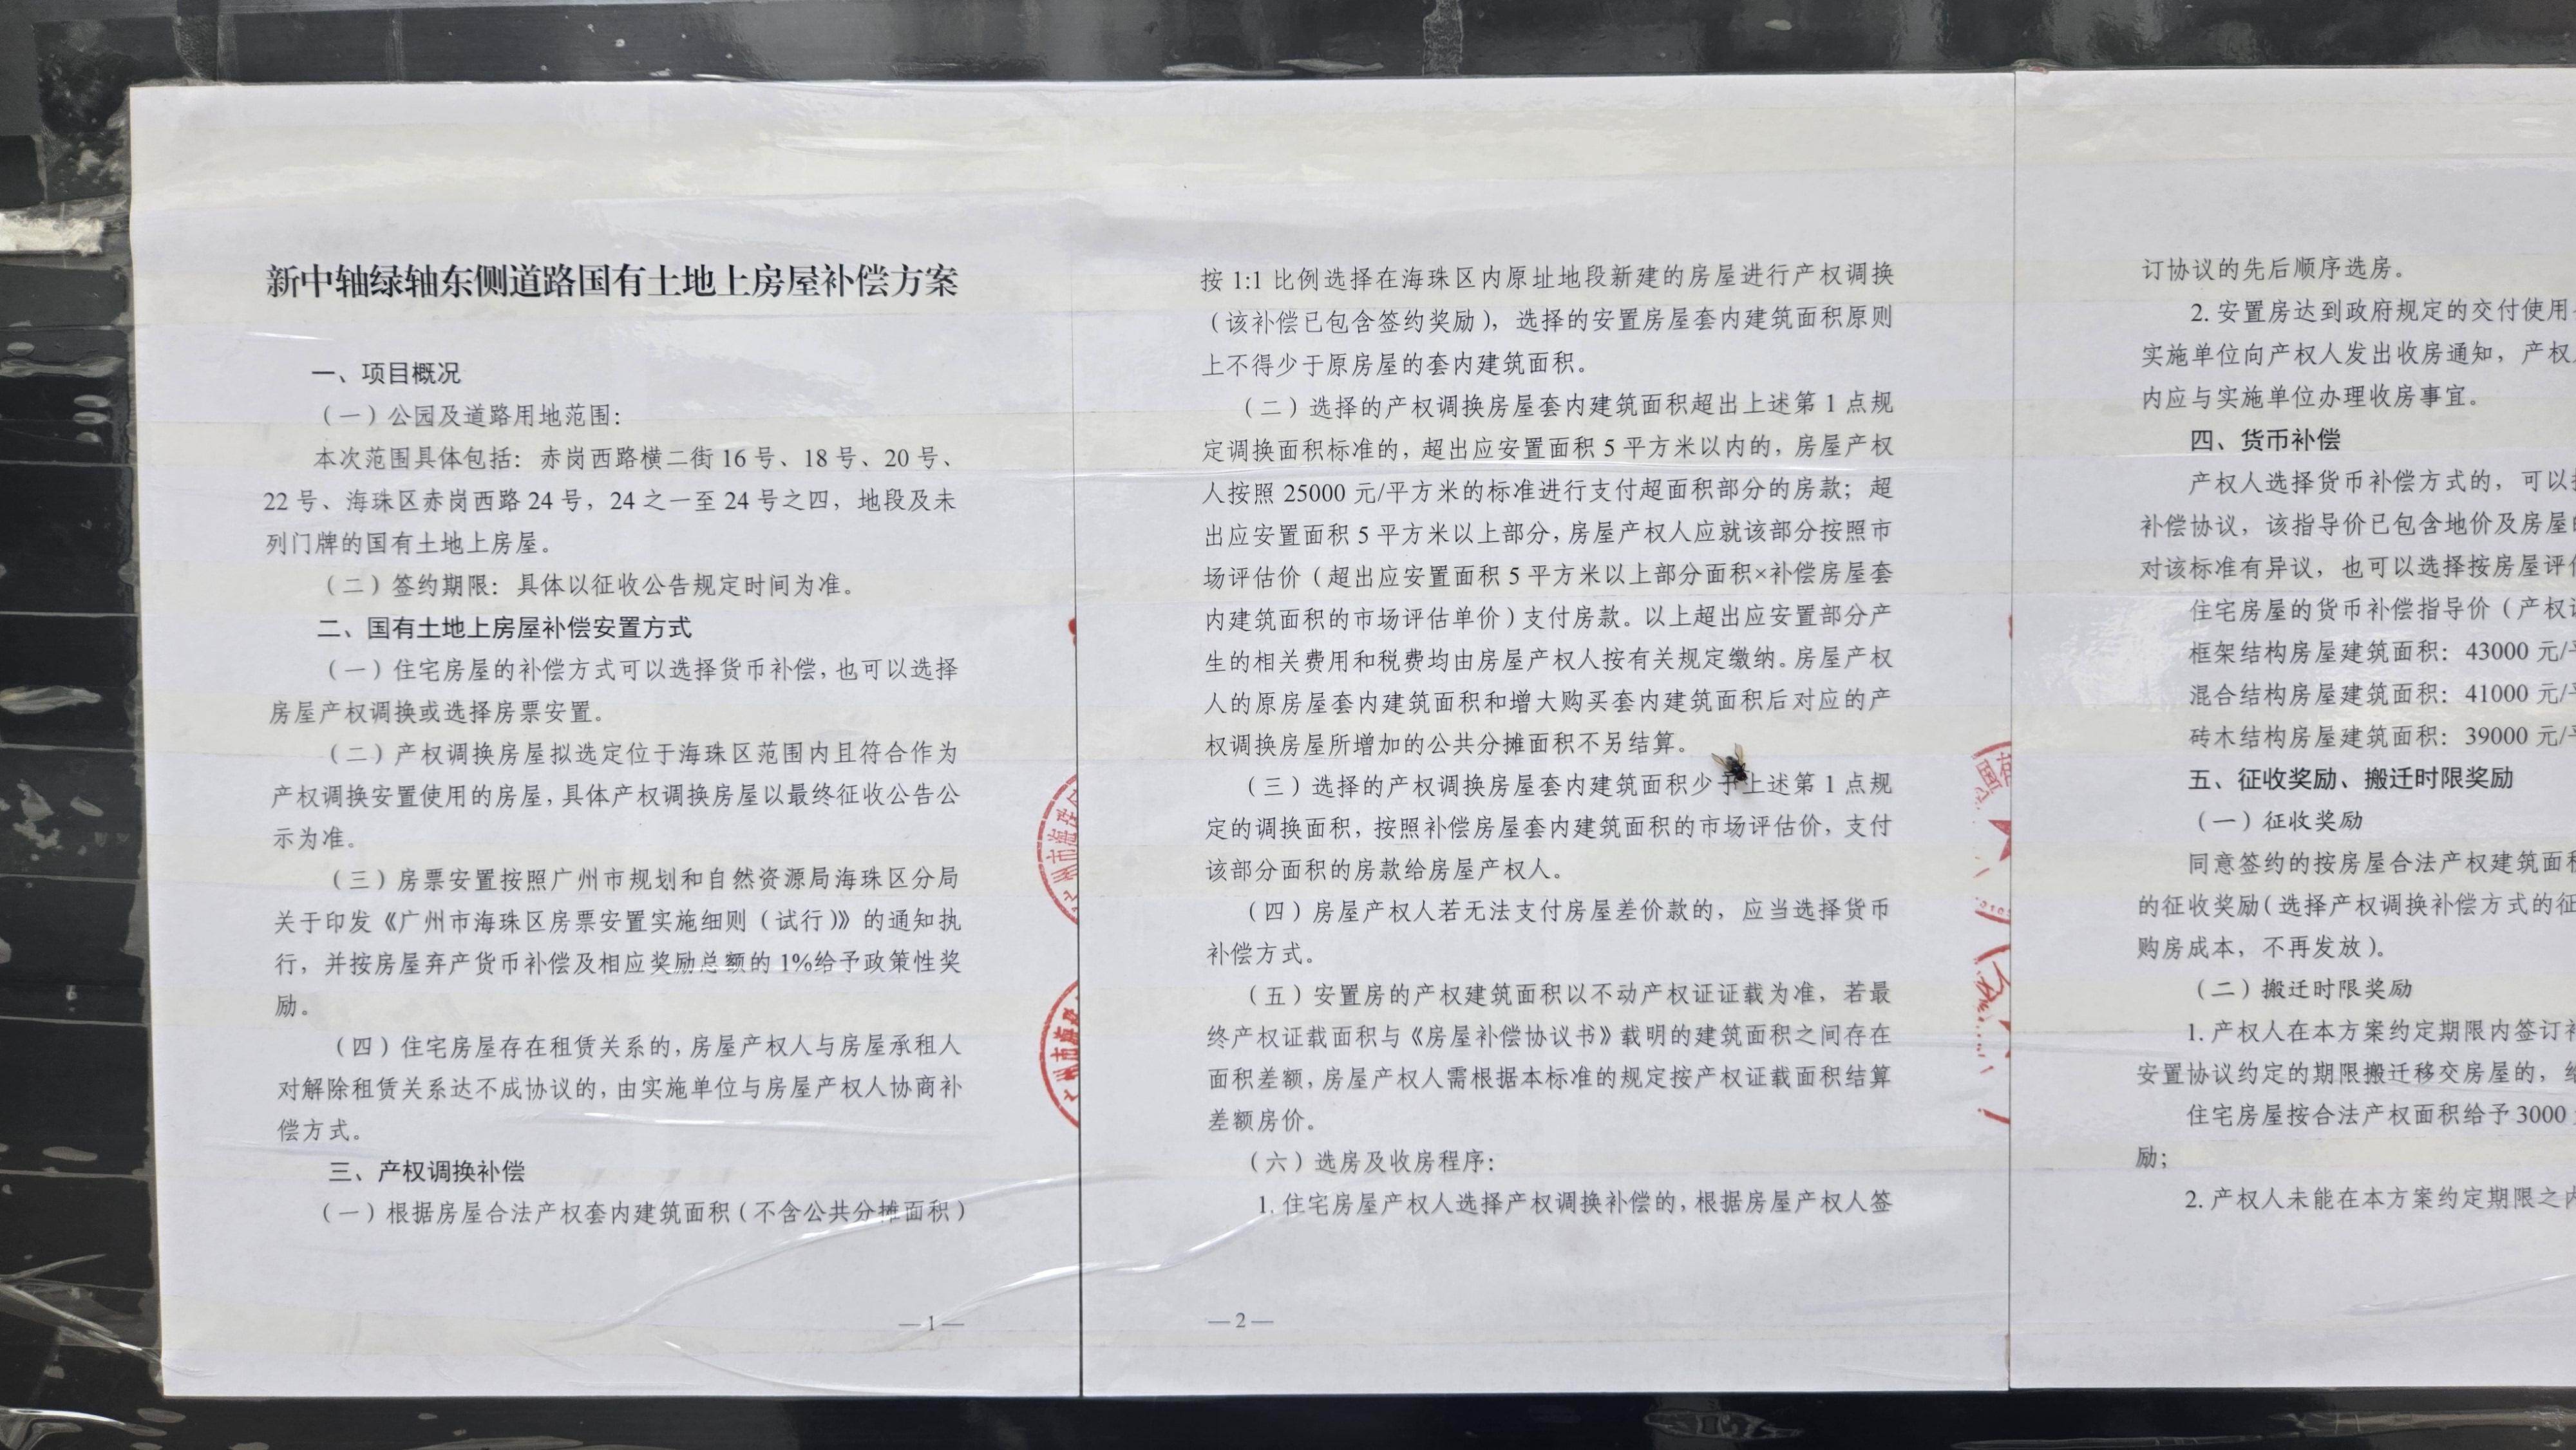 新中轴绿轴东侧道路国有土地上房屋补偿方案
一、项目概况
（一）公园及道路用地范围：
本次范围具体包括：赤岗西路横二街16号、18号、20号、
22号、海珠区赤岗西路24号，24之一至24号之四，地段及未
列门牌的国有土地上房屋。
（二）签约期限：具体以征收公告规定时间为准。
二、国有土地上房屋补偿安置方式
（一）住宅房屋的补偿方式可以选择货币补偿，也可以选择
房屋产权调换或选择房票安置。
（二）产权调换房屋拟选定位于海珠区范围内且符合作为
产权调换安置使用的房屋，具体产权调换房屋以最终征收公告公
示为准。
（三）房票安置按照广州市规划和自然资源局海珠区分局
关于印发《广州市海珠区房票安置实施细则（试行）》的通知执
行，并按房屋弃产货币补偿及相应奖励总额的1%给予政策性奖
励。
（四）住宅房屋存在租赁关系的，房屋产权人与房屋承租人
对解除租赁关系达不成协议的，由实施单位与房屋产权人协商补
偿方式。
三、产权调换补偿
（一）根据房屋合法产权套内建筑面积（不含公共分摊面积）
—1—
按1:1比例选择在海珠区内原址地段新建的房屋进行产权调换
（该补偿已包含签约奖励），选择的安置房屋套内建筑面积原则
上不得少于原房屋的套内建筑面积。
（二）选择的产权调换房屋套内建筑面积超出上述第1点规
定调换面积标准的，超出应安置面积5平方米以内的，房屋产权
人按照25000元/平方米的标准进行支付超面积部分的房款；超
出应安置面积5平方米以上部分，房屋产权人应就该部分按照市
场评估价（超出应安置面积5平方米以上部分面积×补偿房屋套
内建筑面积的市场评估单价）支付房款。以上超出应安置部分产
生的相关费用和税费均由房屋产权人按有关规定缴纳。房屋产权
人的原房屋套内建筑面积和增大购买套内建筑面积后对应的产
权调换房屋所增加的公共分摊面积不另结算。
（三）选择的产权调换房屋套内建筑面积少于上述第1点规
定的调换面积，按照补偿房屋套内建筑面积的市场评估价，支付
该部分面积的房款给房屋产权人。
（四）房屋产权人若无法支付房屋差价款的，应当选择货币
补偿方式。
（五）安置房的产权建筑面积以不动产权证证载为准，若最
终产权证载面积与《房屋补偿协议书》载明的建筑面积之间存在
面积差额，房屋产权人需根据本标准的规定按产权证载面积结算
差额房价。
（六）选房及收房程序：
1.住宅房屋产权人选择产权调换补偿的，根据房屋产权人签
—2—
订协议的先后顺序选房。
2.安置房达到政府规定的交付使用
实施单位向产权人发出收房通知，产权
内应与实施单位办理收房事宜。
四、货币补偿
产权人选择货币补偿方式的，可以
补偿协议，该指导价已包含地价及房屋
对该标准有异议，也可以选择按房屋评
住宅房屋的货币补偿指导价（产权
框架结构房屋建筑面积：43000元/
混合结构房屋建筑面积：41000元/
砖木结构房屋建筑面积：39000元/
五、征收奖励、搬迁时限奖励
（一）征收奖励
同意签约的按房屋合法产权建筑面
的征收奖励（选择产权调换补偿方式的征
购房成本，不再发放）。
（二）搬迁时限奖励
1.产权人在本方案约定期限内签订
安置协议约定的期限搬迁移交房屋的，
住宅房屋按合法产权面积给予3000
励；
2.产权人未能在本方案约定期限之